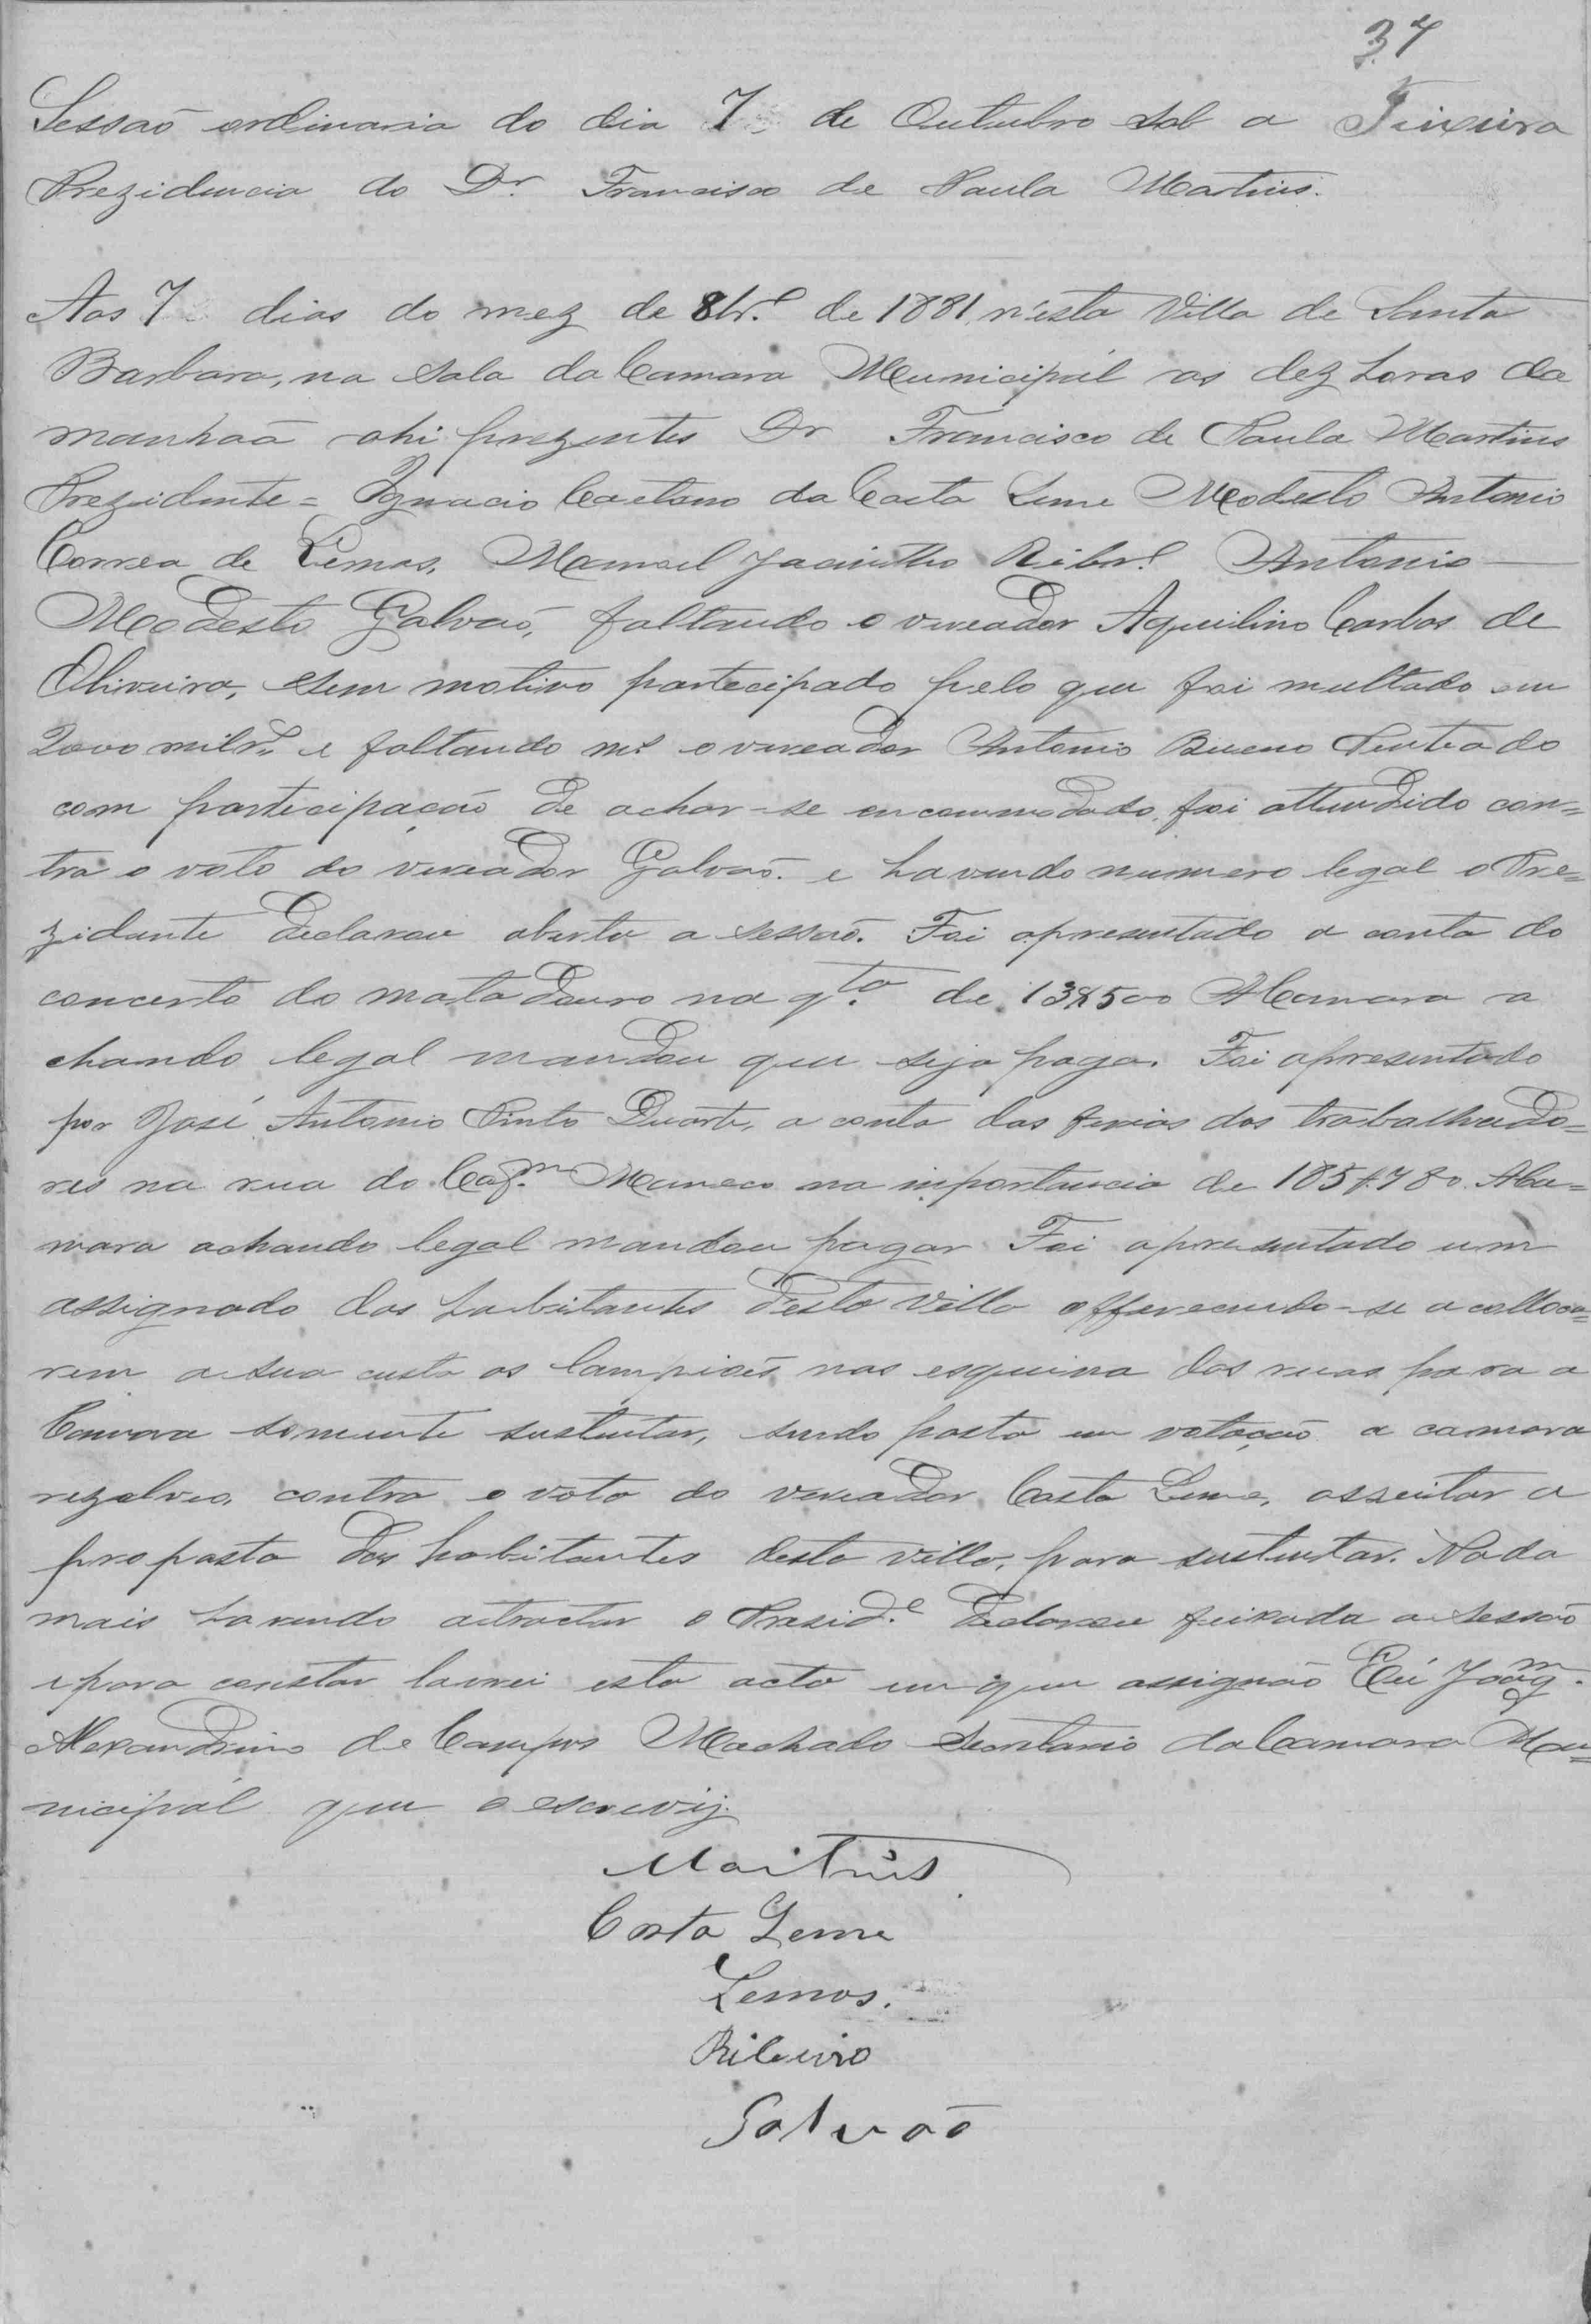 37
Sessaõ ordinaria do dia 7 de Outubro sob a Teixeira
Prezidencia do Dr Francisco de Paula Martins.
Aos 7 dias do mez de 8br.º de 1881, n'esta Villa de Santa
Barbara, na sala da Camara Municipál as dez horas da
manhaã ahi prezentes Dr Francisco de Paula Martins
Prezidente = Ignacio Caetano da Costa Leme Modesto Antonio
Correa de Lemos, Manoel Jacintho Ribr.º Antonio
Modesto Galvaõ, faltando o vereador Aquilino Carlos de
Oliveira, sem motivo partecipado pelo que foi multado em
e faltando m.º o vereador Antonio Bueno Penteado
com participação de achar-se encommodado, foi attendido con=
tra o voto do vereador Galvaõ. e havendo numero legal o Pre=
zidente declarou aberta a sessaõ. Foi apresentado a conta do
concerto do matadouro na q.ta de 13$500 ACamara a
chando legal mandou que seja paga. Foi apresentado
por José Antonio Pinto Duarte, a conta das ferias dos trabalhado=
res na rua do Cap.m Maneco na importancia de 185$780. ACa=
mara achando legal mandou pagar Foi apresentado um
assignado dos habitantes d'esta Villa offerecendo-se a colloca=
rem a sua custa os lampioẽs nas esquina das ruas para a
Camara somente sustentar, sendo posto em votaçaõ a camara
rezolveo, contra o voto do vereador Costa Leme, asseitar a
proposta dos habitantes desta villa, para sustentar. Nada
mais havendo atractar o Presid.e declarou feixada a sessaõ
e para constar lavrei esta acta em que assignaõ Eu Joaq.m
Alexandrino de Campos Machado Secretario da Camara Mu=
nicipál que o escrevij.
Martins
Costa Leme
Lemos.
Ribeiro
Galvaõ